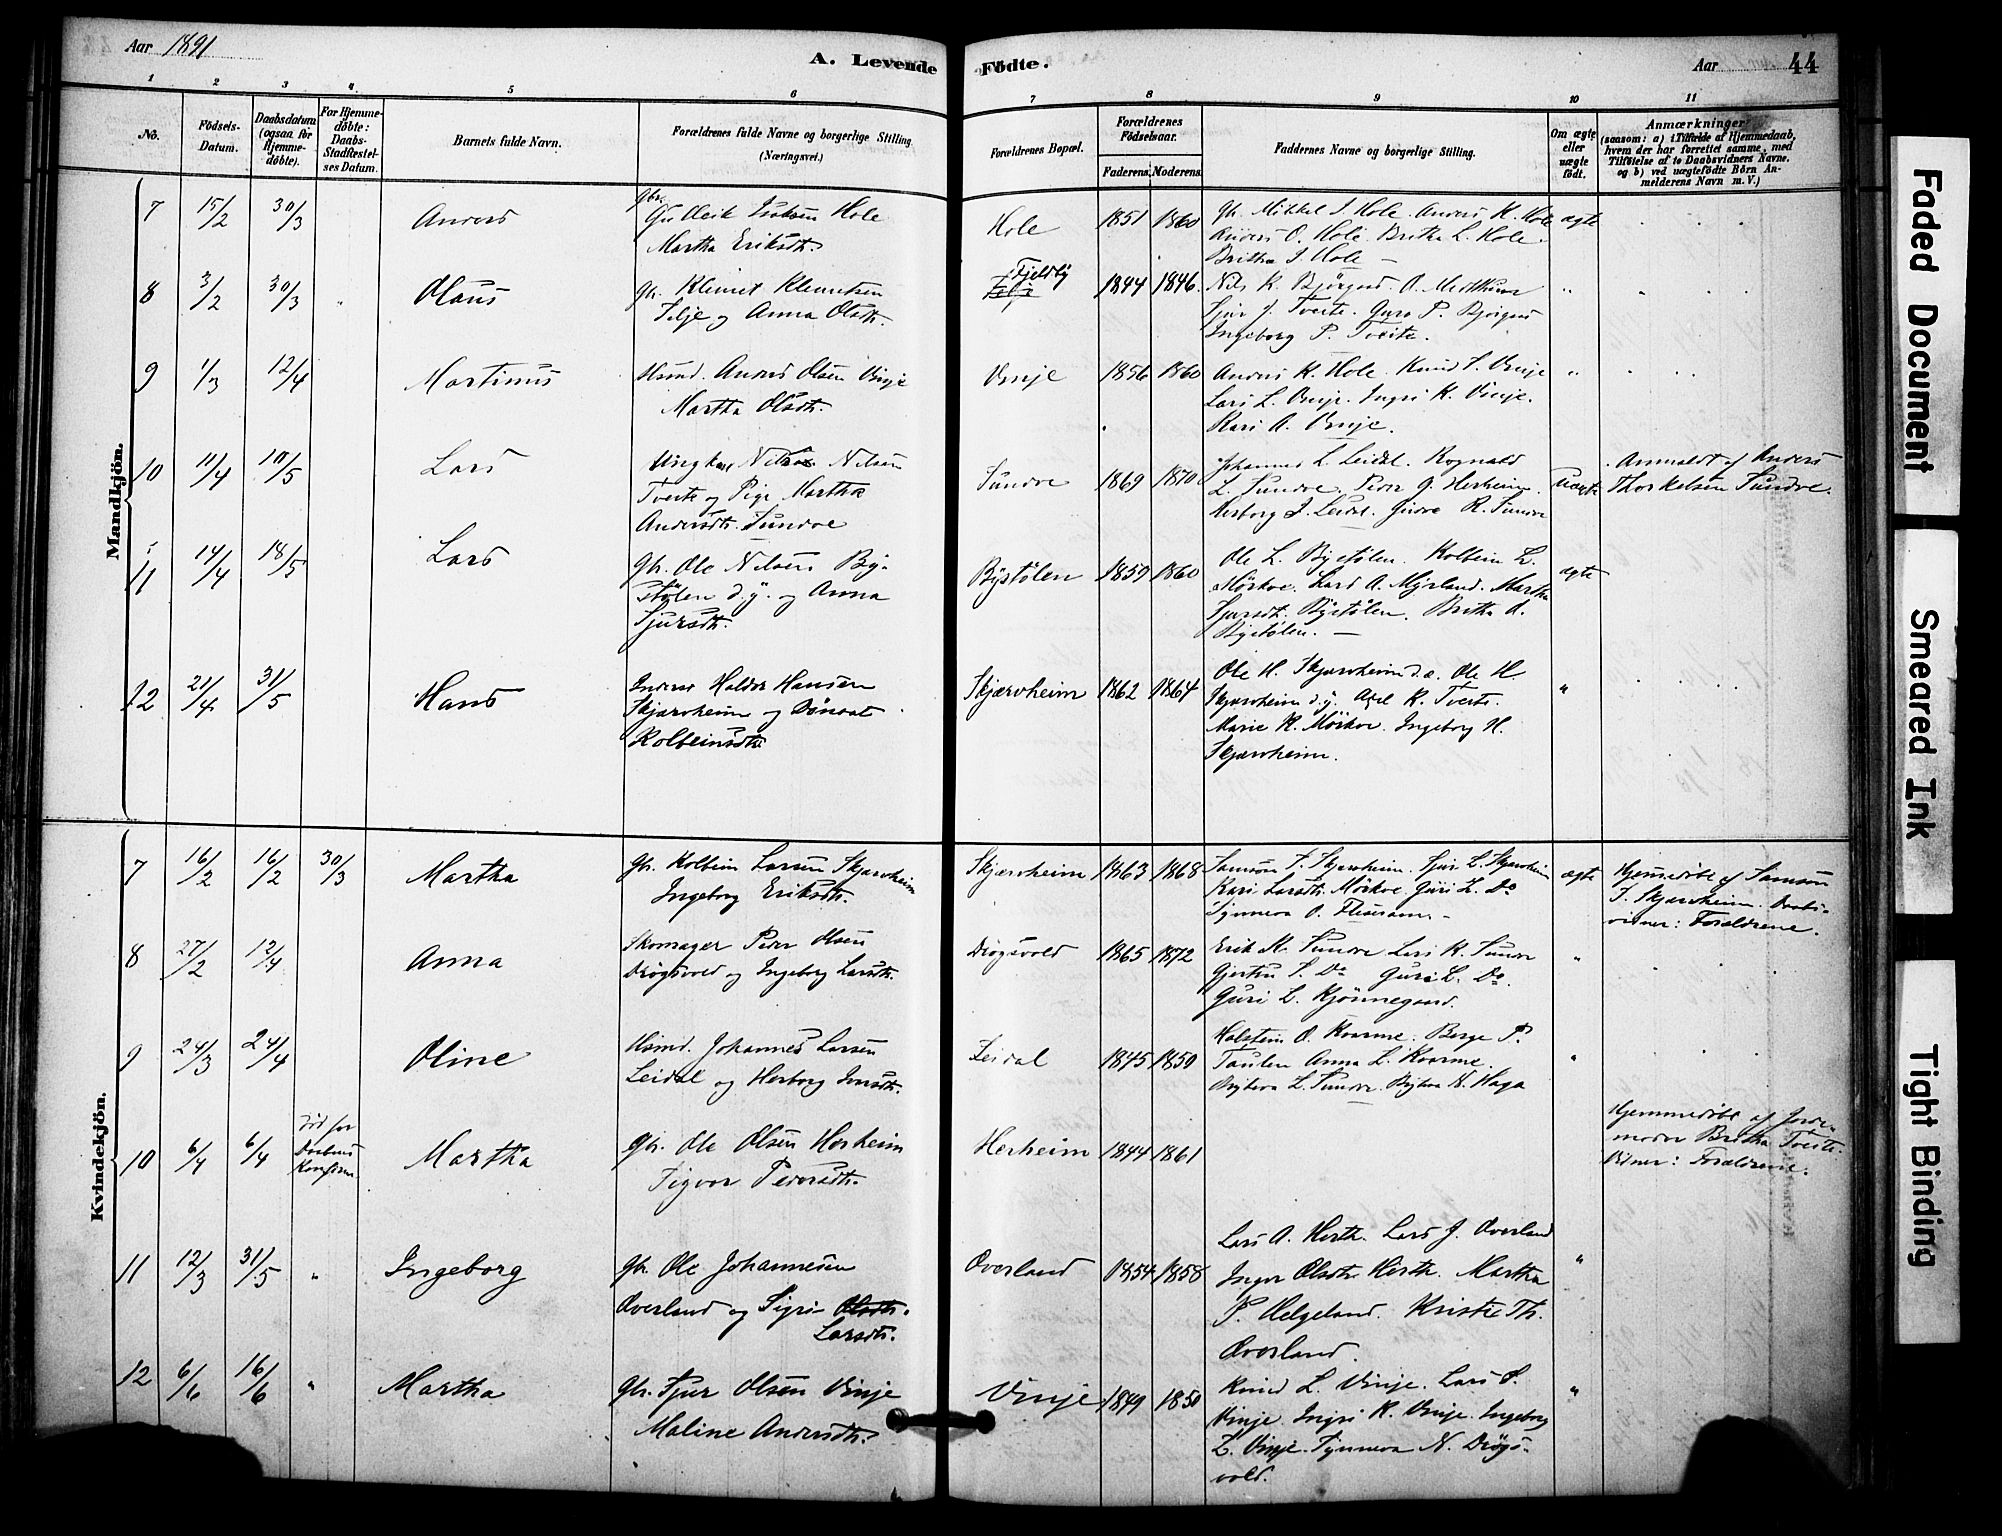 Aar 1891
A. Levende Födte.
Aar
44
1 2 3 4. 5 6 7 8 9 10 11
No.
Födsels-
Datum.
Daabsdatum
(ogsaa for
Hjemme-
döbte).
For Hjemme-
döbte:
Daabs-
Stadfæstel-
ses Datum.
Barnets fulde Navn.
Forældrenes fulde Navne og borgerlige Stilling
(Næringsvei.)
Forældrenes Bopæl.
Forældrenes
Födselsaar.
Faderens. Moderens.
Faddernes Navne og borgerlige Stilling.
Om ægte
eller
uægte
födt.
Anmærkninger
(saasom: a) i Tilfælde af Hjemmedaab,
hvem der har forrettet samme, med
Tilföielse af to Daabsvidners Navne.
og b) ved uægtefödte Börn An-
melderens Navn m. V.)
Mandkjön.
7 15/2 30/3 Anders
Hole
Martha Eriksdtr.
Hole 1851 1860
Gbr. Mikkel I. Hole. Anders K. Hole
Anders O. Hole. Britha L. Hole.
Britha I. Hole —
ægte
8 3/2 30/3 " Olaus
Gbr. Klemet Klemetsen
Tilje og Anna Olsdtr.
Fjeldby
1844 1846.
Nils K. Björgas. O.
Sjur J. Tveite. Guro P.
Ingeborg P. Tveite.
"
9 1/3 12/4 Martinus
Husmd. Anders Olsen Vinje
Martha Olsdtr.
Vinje 1856 1860
Anders K. Hole. Knud S. Vinje
Lars L. Vinje. Ingri K. Vinje.
Kari A. Vinje.
"
10 11/4 10/5 Lars
Ungkar Nilsen
Tveite og Pige Martha
Andersdtr. Sundve
Sundve 1869 1870
Johannes L. Leidal. Rognald
L. Sundve. Peder J. Herheim.
Herborg J. Leidal. R. Sundve
Uægte
Anmeldt af Anders
Thorkelsen Sundve.
11 14/4 18/5 Lars
Gbr. Ole Nilsen By-
stölen d.y. og Anna
Sjursdtr.
Bystölen 1859 1860
Ole L. Bystölen. Kolbein L.
Mörkve. Lars A. Myrland. Martha
Sjursdtr. Bystölen. Britha A.
Bystölen. —
ægte
12 21/4 31/5 Hans
Inderst Haldor Hansen
Skjærvheim og
Kolbeinsdtr.
Skjærvheim 1862 1864
Ole H. Skjærvheim d.æ. Ole H.
Skjærvheim d.y. K. Tveite.
Marie K. Mörkve. Ingeborg H.
Skjærvheim.
"
Kvindekjön.
7 16/2 16/2 30/3 Martha
Gbr. Kolbein Larsen Skjærvheim
Ingeborg Eriksdtr.
Skjærvheim 1863 1868
Samson S. Skjærvheim. Sjur L. Skjærvheim
Kari Larsdtr. Mörkve. Guri L. Do
Synneva O.
ægte
Hjemmedöbt af Samson
S. Skjærvheim. Daabs-
vidner: Forældrene.
8 27/2 12/4 Anna
Skomager Peder Olsen
Drögsvold og Ingeborg Larsdtr.
Drögsvold 1865 1872
Erik M. Sundve. Lars K. Sundve
Gjertru S. Do Guri L. Do.
Guri L. Kjönnegaard.
"
9 24/3 24/4 Oline
Husmd. Johannes Larsen
Leidal og Herborg Ivarsdtr.
Leidal 1845 1850
Holstein O. Kvarme. Berge P.
Taulen Anna L. Kvarme.
L. Sundve. N. Haga
"
10 6/4 6/4
Död for
Daabens
Martha
Gbr. Ole Olsen Herheim
Sigvor Pedersdtr.
Herheim 1844 1861
Hjemmedöbt af Jorde-
moder Britha Tveite.
Vidner: Forældrene.
11 12/3 31/5 " Ingeborg
Gbr. Ole Johannesen
Øverland og Sigri Olsdtr.
Larsdtr.
Øverland 1854 1858
Lars A. Herth. Lars J. Øverland
Inger Olsdtr. Herth. Martha
P. Helgeland. Kristi Th.
Øverland.
"
12 6/6 16/6 " Martha
Gbr. Sjur Olsen Vinje
Maline Andersdtr.
Vinje 1849 1850
Knud L. Vinje. Lars S.
Vinje. Ingri K. Vinje. Ingeborg
L. Vinje. Synneva N. Drögs-
vold.
"
Faded Document
Smeared Ink
Tight Binding